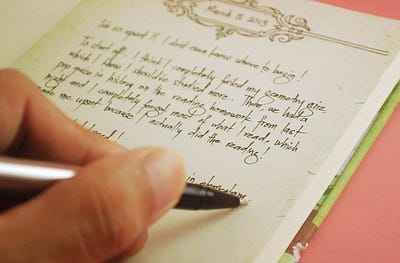 March 5, 2013
I'm so upset!! I don't even know where to begin!
To start off, I think I completely failed my geometry quiz,
which I know I should've studied more. Then we had a
pop quiz in history on the reading homework from last
night and I completely forgot most of what I read, which
made me upset because I actually did the reading!
in